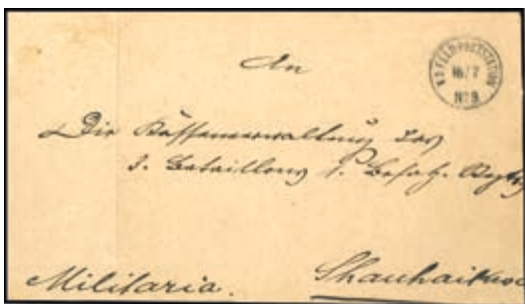 An
K.D. FELD-POSTSTATION
16/7
No 9
Die Kassenverwaltung des
3. Bataillons 1. Besatz. Regts
Militaria.
Shanhaikwan